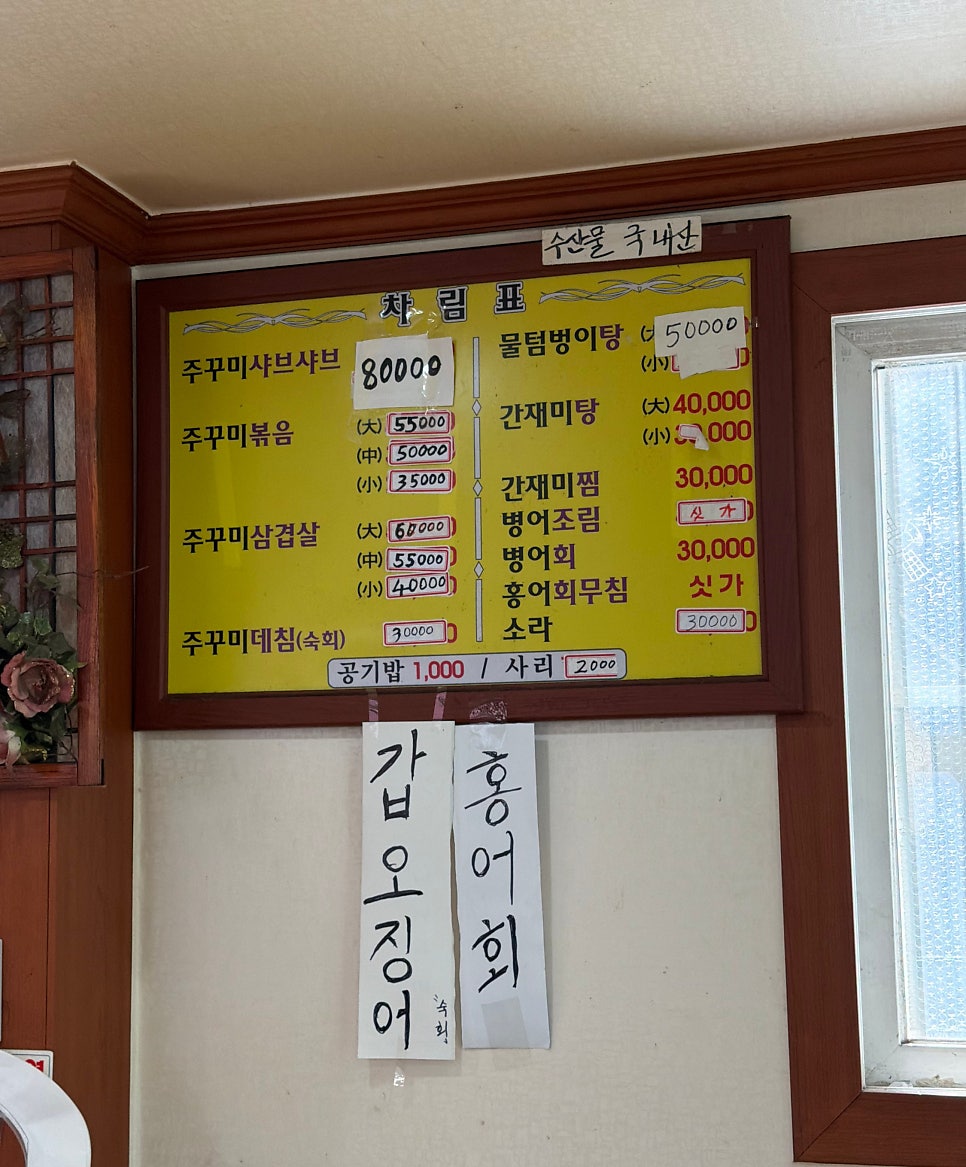 수산물 국내산
차림표
주꾸미샤브샤브 80000
주꾸미볶음 (大) 55000
(中) 50000
(小) 35000
주꾸미삼겹살 (大) 60000
(中) 55000
(小) 40000
주꾸미데침(숙회) 30000
물텀벙이탕 50000
(小)
간재미탕 (大) 40,000
(小)
간재미찜 30,000
병어조림 싯가
병어회 30,000
홍어회무침 싯가
소라 30000
공기밥 1,000 / 사리 2000
갑오징어 "숙회"
홍어회